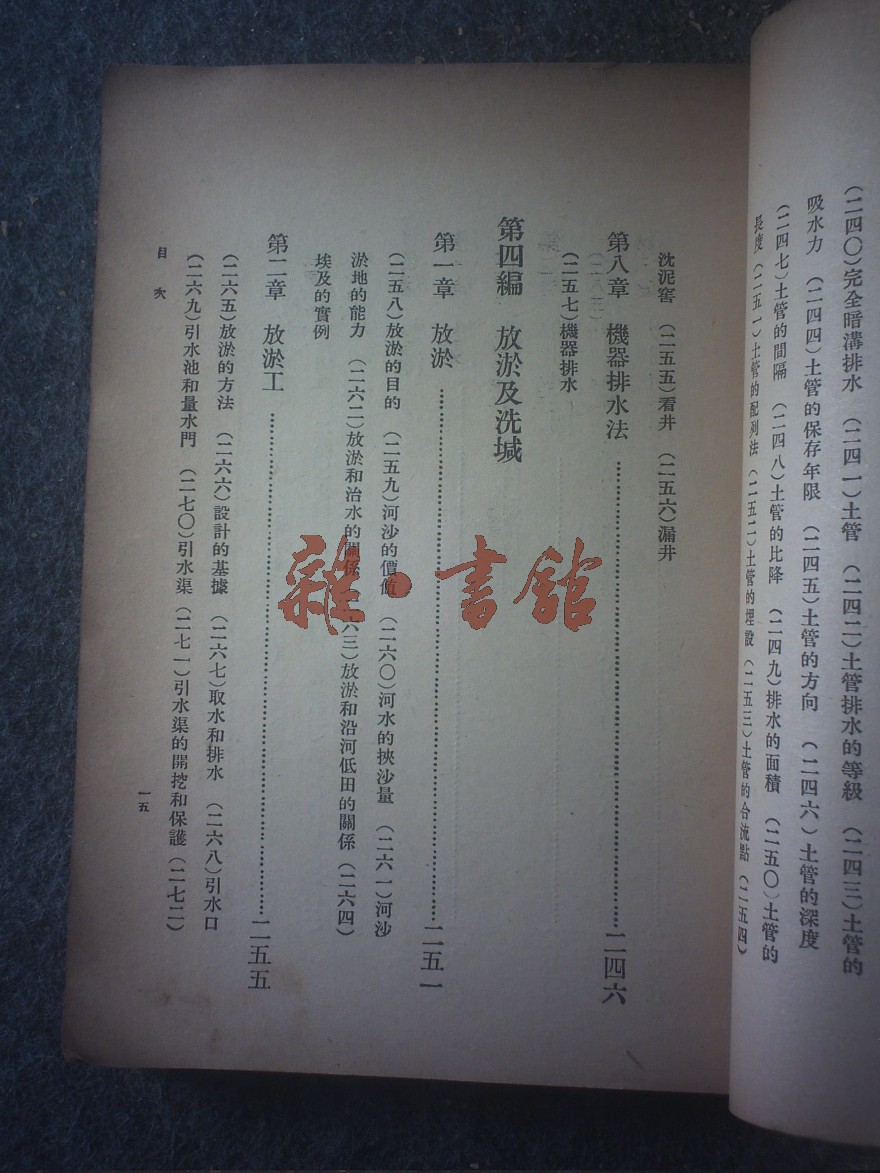 (二四〇)完全暗溝排水 (二四一)土管 (二四二)土管排水的等級 (二四三)土管的
吸水力 (二四四)土管的保存年限 (二四五)土管的方向 (二四六)土管的深度
(二四七)土管的間隔 (二四八)土管的比降 (二四九)排水的面積 (二五〇)土管的
長度 (二五一)土管的配列法 (二五二)土管的埋設 (二五三)土管的合流點 (二五四)
沈泥窖 (二五五)看井 (二五六)漏井
第八章 機器排水法……二四六
(二五七)機器排水
第四編 放淤及洗堿
第一章 放淤……二五一
(二五八)放淤的目的 (二五九)河沙的價值 (二六〇)河水的挾沙量 (二六一)河沙
淤地的能力 (二六二)放淤和治水的關係 (二六三)放淤和沿河低田的關係 (二六四)
埃及的實例
第二章 放淤工……二五五
(二六五)放淤的方法 (二六六)設計的基據 (二六七)取水和排水 (二六八)引水口
(二六九)引水池和量水門 (二七〇)引水渠 (二七一)引水渠的開挖和保護 (二七二)
目次
一五
雜·書館